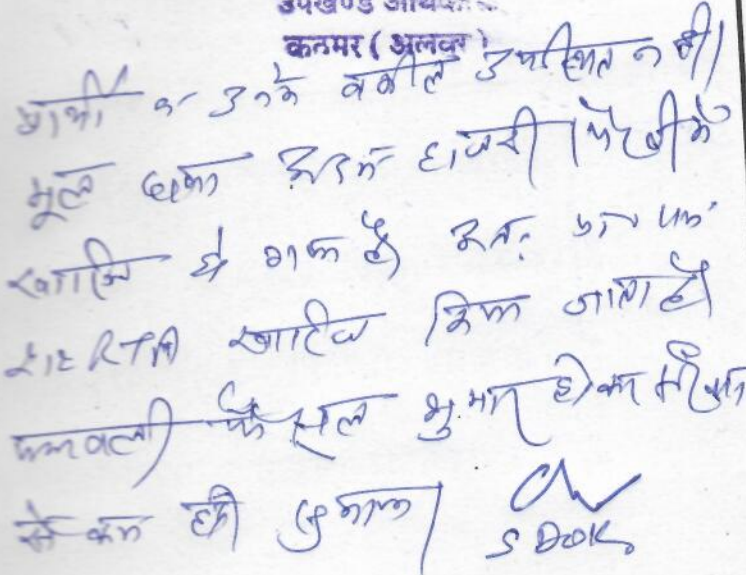 उपखण्ड अधिका
कठूमर ( अलवर )
प्रार्थी व उनके वकील उपस्थित नही।
मूल दावा अदम हाजरी पैरवी में
खारिज हो गया है अतः प्रा० पत्र
212 RTA खारिज किया जाता है
पत्रावली फैसल शुमार होकर
से कम हो
SDOK